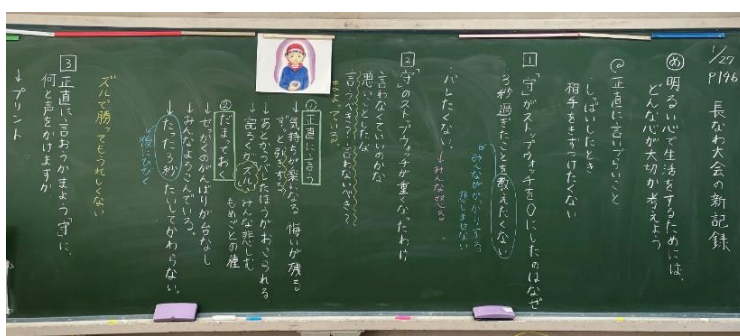 1/27
P146
長なわ大会の新記録
め 明るい心で生活をするためには、
どんな心が大切か考えよう
正直に言いづらいこと
しっぱいしたとき
相手をきずつけたくない
1 「守」がストップウォッチを0にしたのはなぜ
3秒過ぎたことを教えたくない
みんながっかりする
悲しませない
バレたくない。→みんな怒る
2 「守」のストップウォッチが重くなったわけ
言わなくていいのかな
思ったことしたな
言うべき?言わないべき?
まよっている。
① 正直に言う
→気持ちが楽になる 悔いが残る
ずっと引きずる。
→あとからバレたほうがおこられる
→記ろくがズル みんな悲しむ
もめごとの種
② だまっておく
→せっかくのがんばりが台なし
→みんなよろこんでいる。
→たった3秒 たいしてかわらない。
→悔いなく
ズルで勝ってもうれしくない
3 正直に言おうかまよう「守」に、
何と声をかけますか
↓プリント